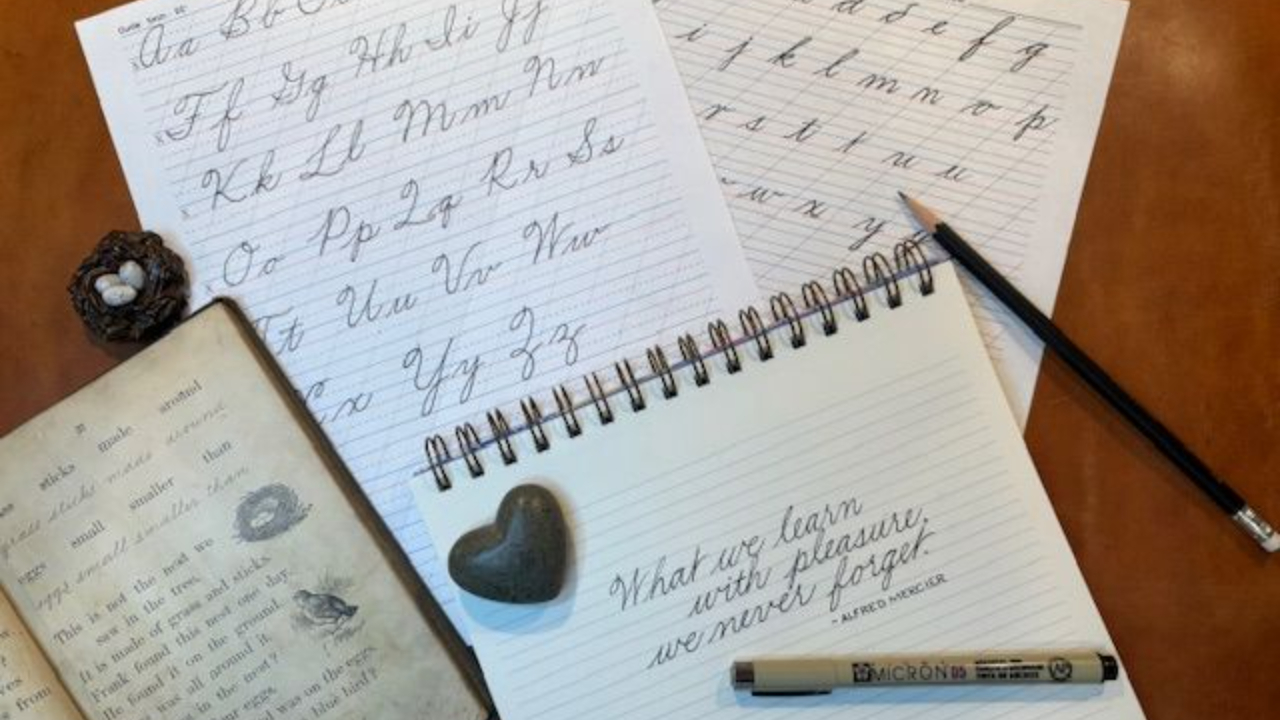 Aa Bb
Ff Gg Hh Ii Jj
Kk Ll Mm Nn
Oo Pp Qq Rr Ss
Tt Uu Vv Ww
x Yy Zz
d d e f g
i j k l m n o p
r s t t u u
w x y
around
sticks made
grass sticks made around
than
small smaller
eggs small smaller than
eggs
This is not the nest we
saw in the tree.
It is made of grass and sticks.
Frank found this nest one day.
He found it on the ground
all around it.
in the nest?
eggs.
was on the eggs.
blue bird?
from
What we learn
with pleasure,
we never forget.
- ALFRED MERCIER
MICRON 05